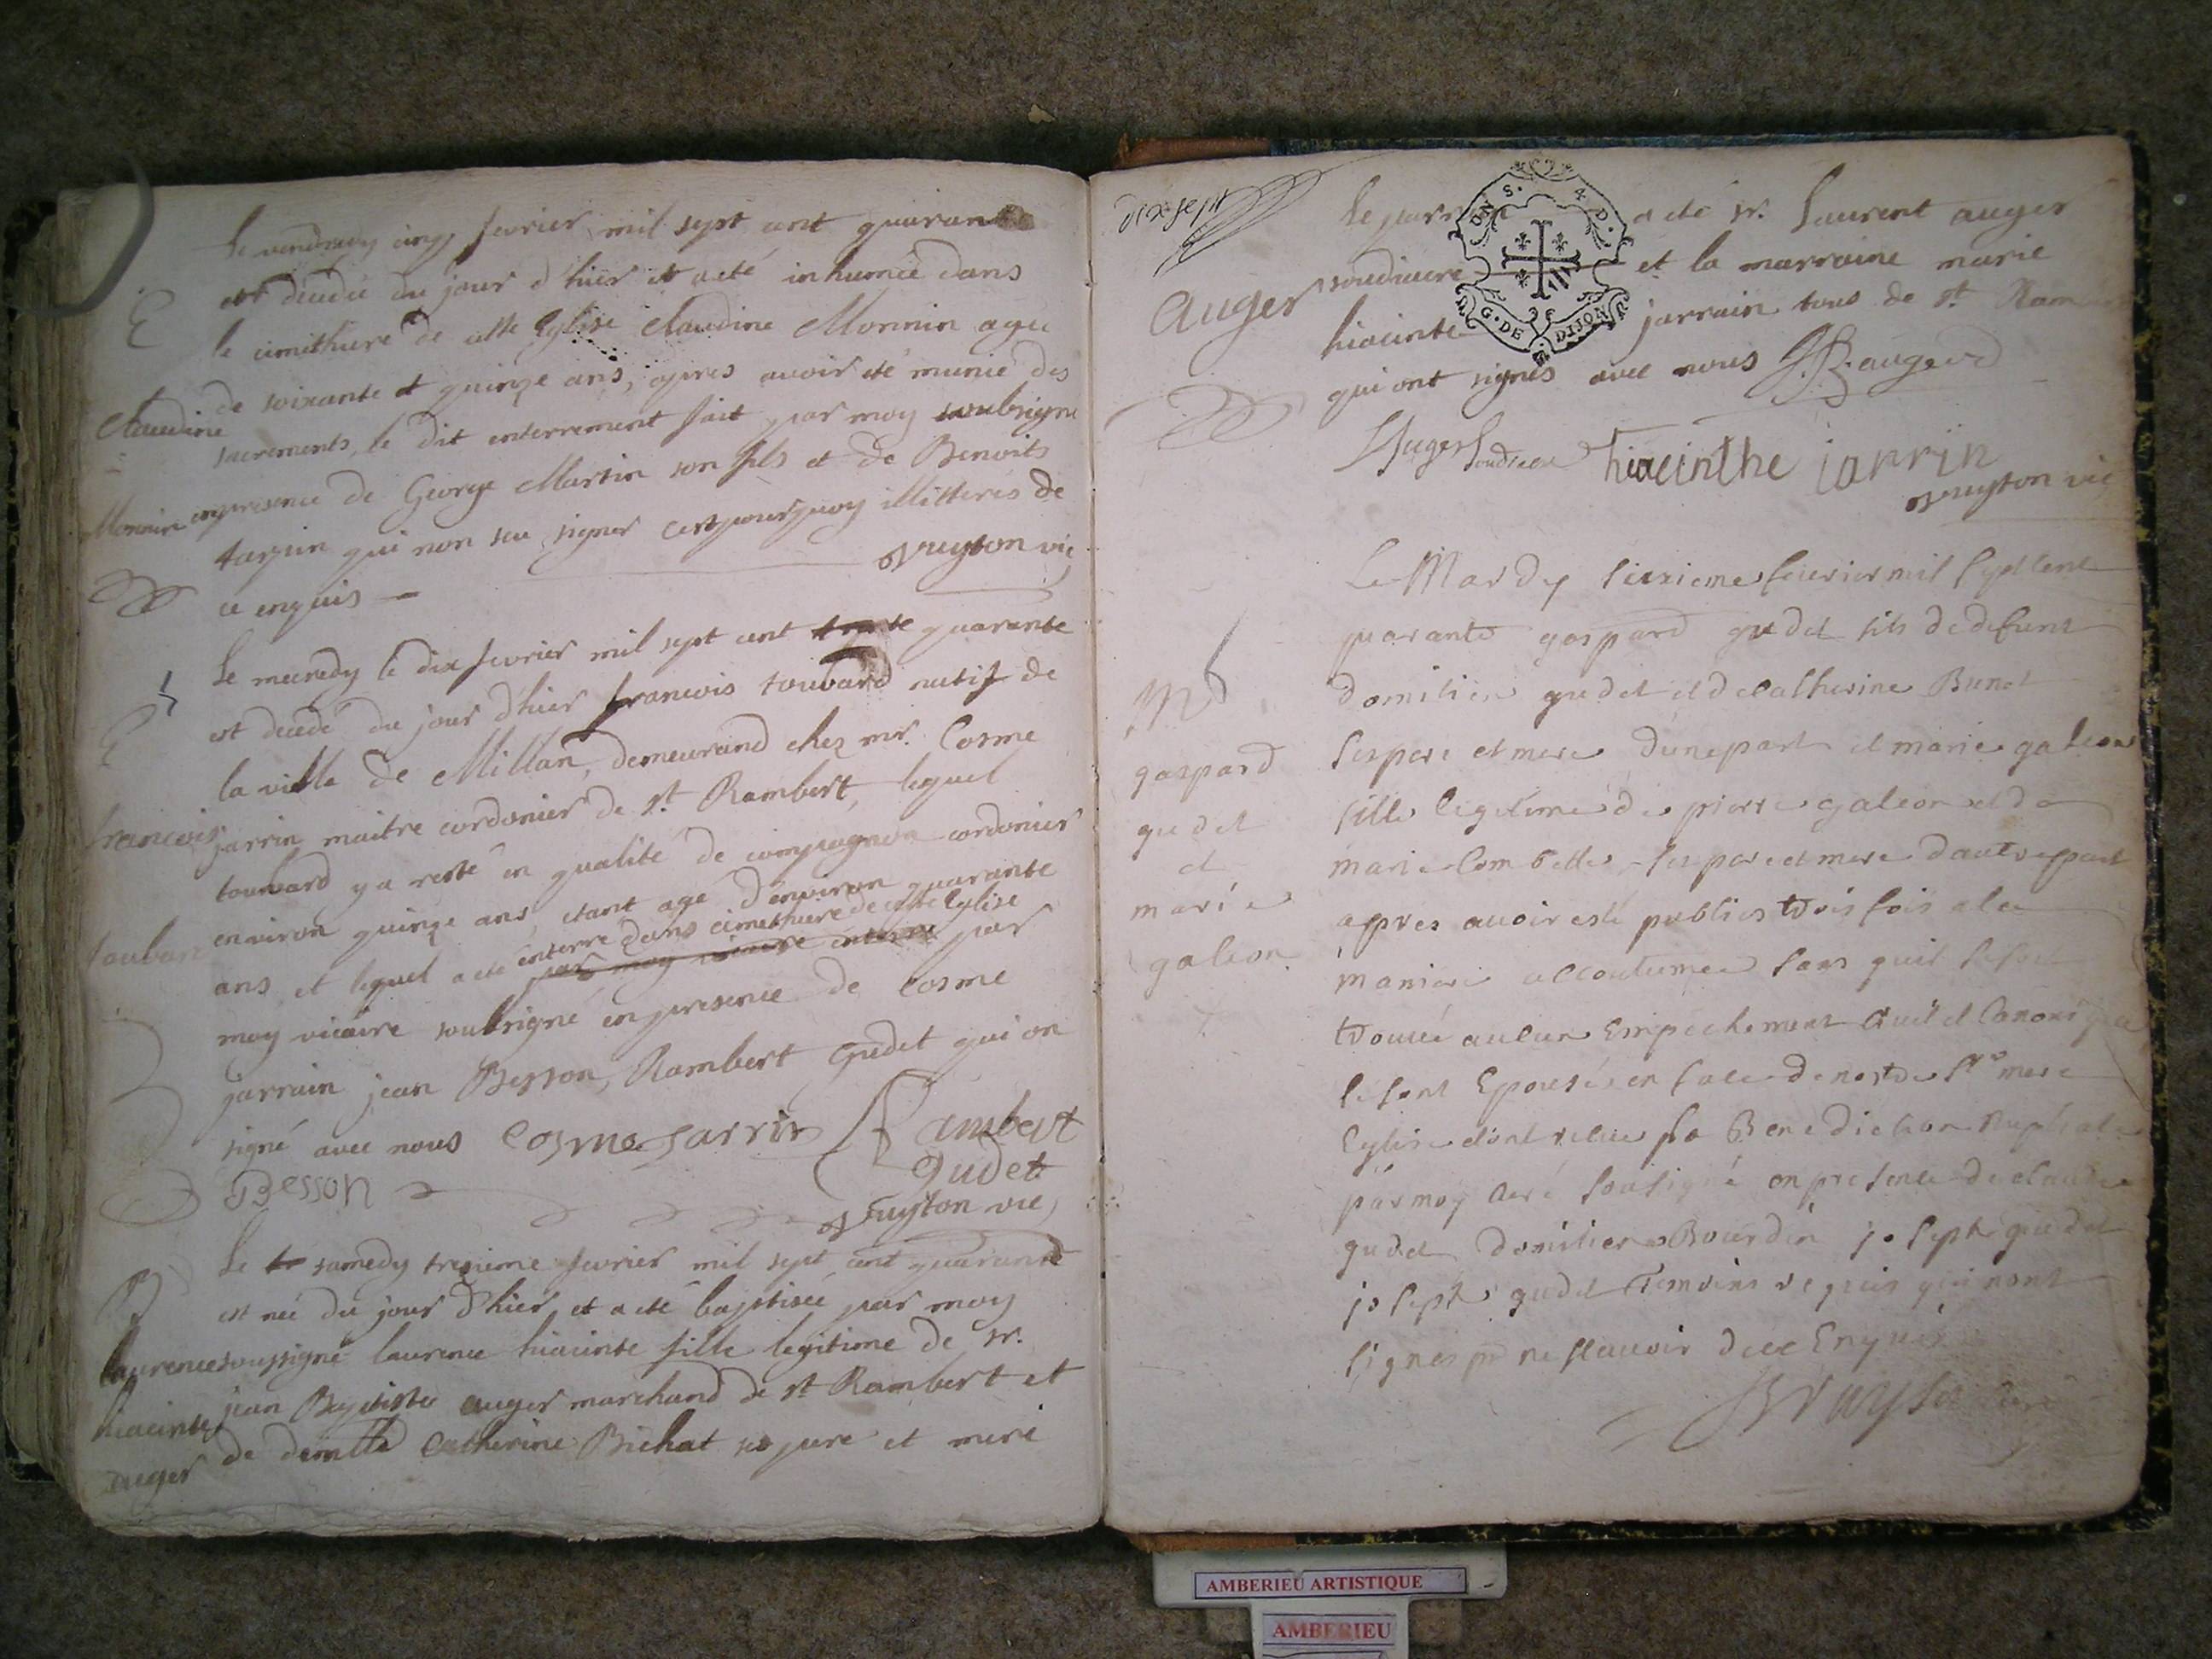 Le vendredy cinq fevrier mil sept cent quarante
est decedé du jour d'hier et a eté inhumée dans
E
le cimithiere de cette Eglise claudine Monnin agée
de soixante et quinze ans, apres avoir eté munie des
claudine
sacrements, le dit enterrement fait par moy soubsigné
Monnin
en presence de George Martin son fils et de Benoits
tarpin qui non seu signer c'est pourquoy illitteres de
ce enquis
Bruyton vic
Le mecredy le dix fevrier mil sept cent quarante
E
est decedé du jour d'hier francois toubard natif de
la ville de Millan, demeurand chez mr. Cosme
francois
jarrin maitre cordonier de st Rambert, lequel
toubard y a resté en qualité de compagnon cordonier
environ quinze ans, etant agé d'environ quarante
toubard
ans et lequel a eté enterre dans cimithiere de cette Eglise
par moy vicaire enterré par
moy vicaire soubsigné en presence de Cosme
jarrain jean Besson, Rambert Gudet qui on
signé avec nous Cosme Jarrin Rambert
Gudet
Besson
Bruyton vic
Le samedy tresieme fevrier mil sept cent quarante
B
est née du jour d'hier, et a eté baptisée par moy
laurence
soussigné laurence hiacinte fille legitime de sr.
hiacinte
jean Baptiste auger marchand de st Rambert et
auger
de demlle Catherine Bichat ses pere et mere
dix-sept
le parrain a eté sr. Laurent auger
auger
soudiacre et la marraine marie
hiacinte jarrain tous de st. Ram
qui ont signés avec nous J. B. auger
DN S. 4 D.
G. DE DIJON
L Auger Soudiacre hiacinthe jarrin
Bruyton vic
Le Mardy seizieme fevrier mil sept cent
quarante gaspard gudet fils de defunt
M
domitien gudet et de catherine Brunet
gaspard
ses pere et mere d'une part et marie galeon
gudet
fille legitime de pierre galeon et de
et
marie Combette ses pere et mere d'autre part
marie
apres avoir esté publies trois fois a la
galeon
maniere accoutumee sans quil se soit
trouvé aucun Empechement Civil et Canonique
se sont Epousés en face de nostre ste mere
Eglise et ont receu la Benediction Nuptiale
par moy curé sousigné en presence de claude
gudet domitien Bourdin joseph gudet
joseph gudet temoins requis qui nont
signes pr ne scavoir de ce Enquis
Bruyton curé
AMBERIEU ARTISTIQUE
AMBERIEU